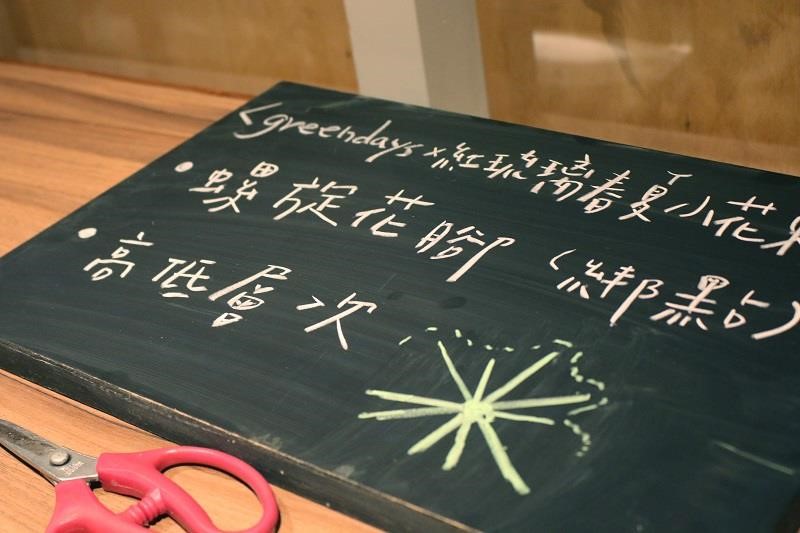 <greendays x紅琉璃春夏小花束
• 螺旋花腳 (綁點)
• 高低層次